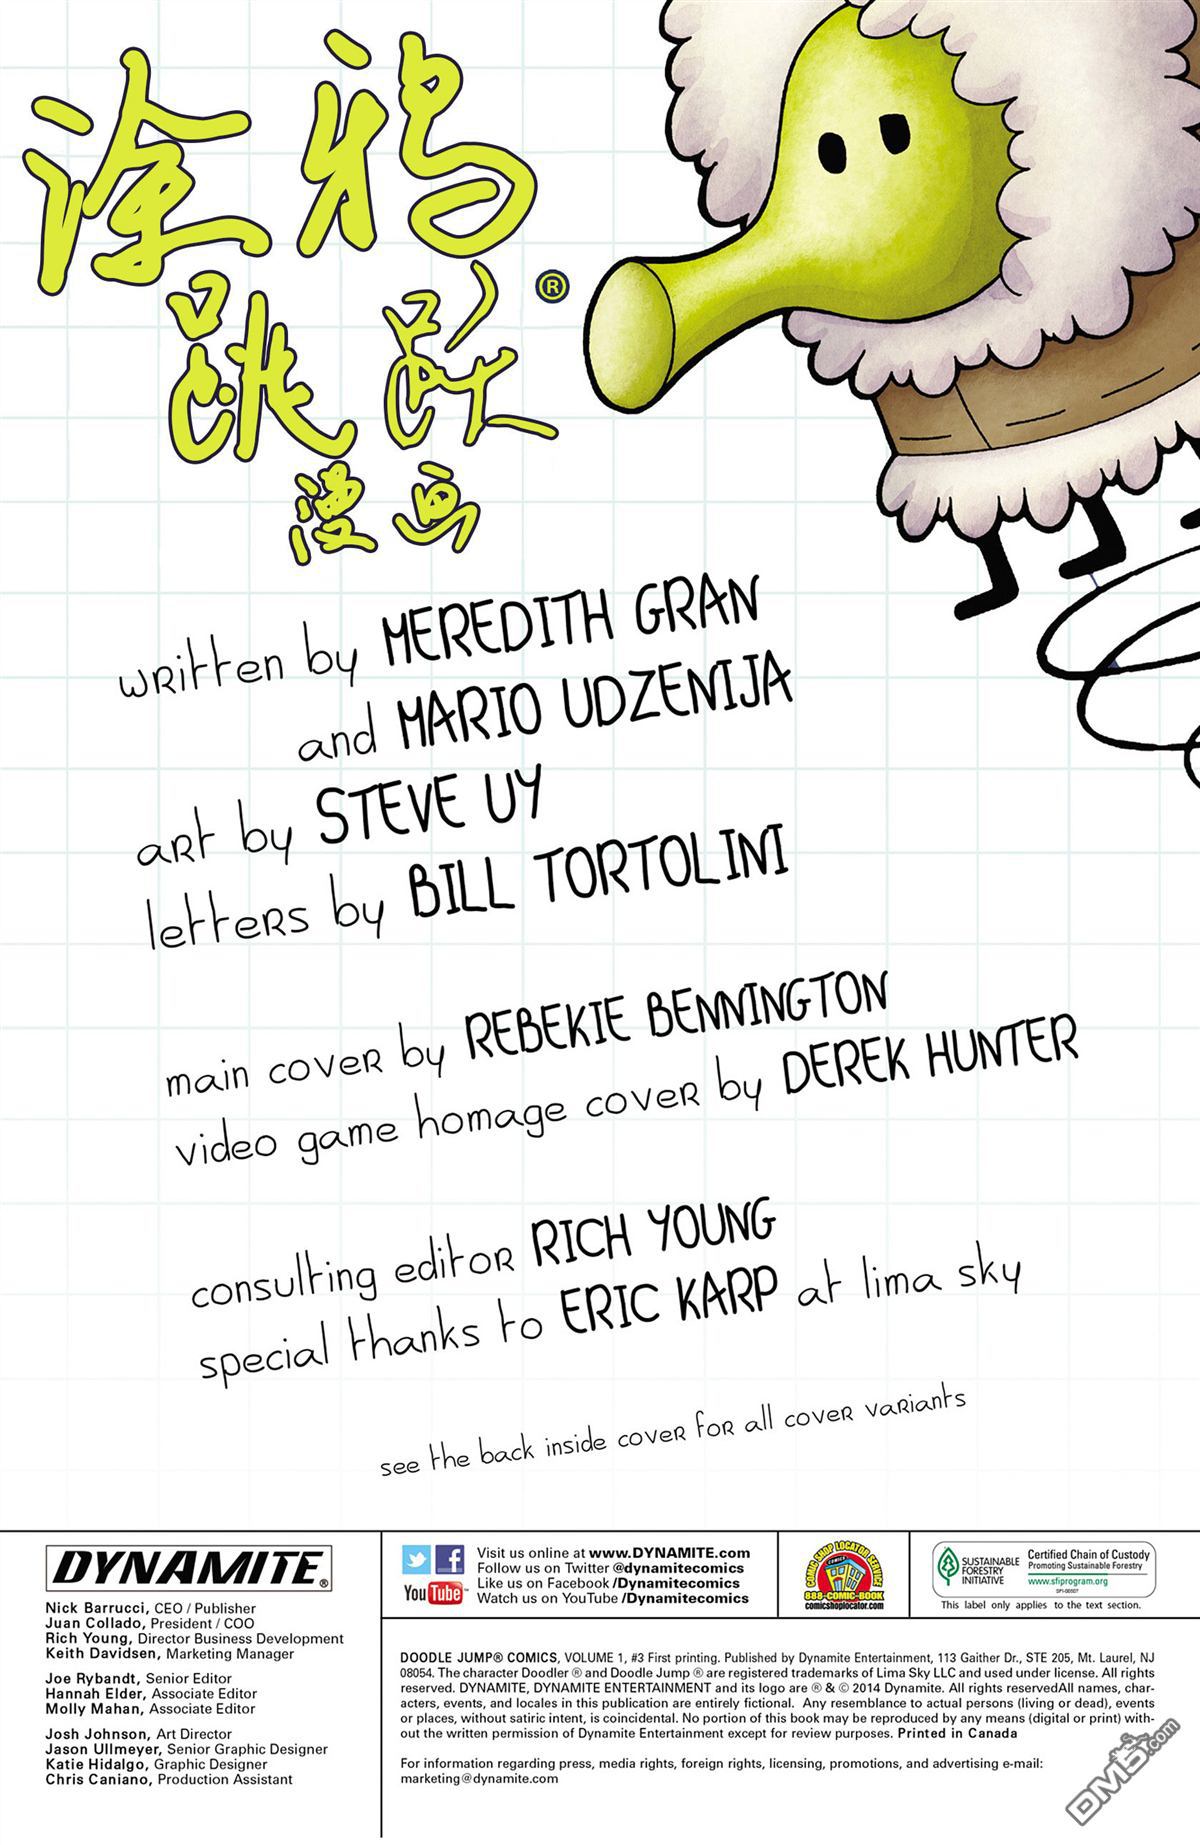 涂鸦
跳跃®
漫画
written by MEREDITH GRAN
and MARIO UDZENIJA
art by STEVE UY
letters by BILL TORTOLINI
main cover by REBEKIE BENNINGTON
video game homage cover by DEREK HUNTER
consulting editor RICH YOUNG
special thanks to ERIC KARP at lima sky
see the back inside cover for all cover variants
DYNAMITE®
Nick Barrucci, CEO / Publisher
Juan Collado, President / COO
Rich Young, Director Business Development
Keith Davidsen, Marketing Manager
Joe Rybandt, Senior Editor
Hannah Elder, Associate Editor
Molly Mahan, Associate Editor
Josh Johnson, Art Director
Jason Ullmeyer, Senior Graphic Designer
Katie Hidalgo, Graphic Designer
Chris Caniano, Production Assistant
You Tube
Visit us online at www.DYNAMITE.com
Follow us on Twitter @dynamitecomics
Like us on Facebook /Dynamitecomics
Watch us on YouTube /Dynamitecomics
COMIC SHOP LOCATOR SERVICE
COMICS
888-COMIC-BOOK
comicshoplocator.com
SUSTAINABLE
FORESTRY
INITIATIVE
Certified Chain of Custody
Promoting Sustainable Forestry
www.sfiprogram.org
SFI-00507
This label only applies to the text section.
DOODLE JUMP® COMICS, VOLUME 1, #3 First printing. Published by Dynamite Entertainment, 113 Gaither Dr., STE 205, Mt. Laurel, NJ
08054. The character Doodler ® and Doodle Jump ® are registered trademarks of Lima Sky LLC and used under license. All rights
reserved. DYNAMITE, DYNAMITE ENTERTAINMENT and its logo are ® & © 2014 Dynamite. All rights reservedAll names, char-
acters, events, and locales in this publication are entirely fictional. Any resemblance to actual persons (living or dead), events
or places, without satiric intent, is coincidental. No portion of this book may be reproduced by any means (digital or print) with-
out the written permission of Dynamite Entertainment except for review purposes. Printed in Canada
For information regarding press, media rights, foreign rights, licensing, promotions, and advertising e-mail:
marketing@dynamite.com
DM5.com